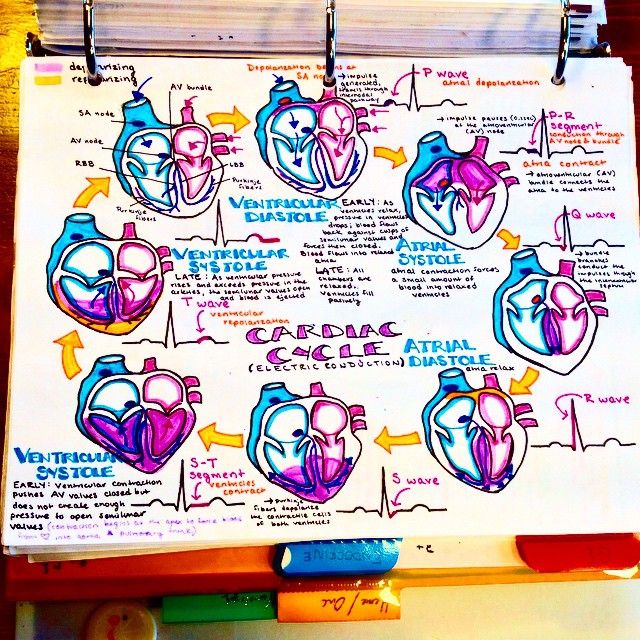 depolarizing
repolarizing
AV bundle
SA node
AV node
RBB
LBB
Purkinje
Fibers
Purkinje
Fibers
Depolarization begins at
SA node
→ impulse
generated,
travels through
internodal
pathway
P wave
atrial depolarization
→ impulse pauses (0.1sec)
at the atrioventricular
(AV) node
P-R
segment
conduction through
AV node & bundle
atria contract
→ atrioventricular (AV)
bundle connects the
atria to the ventricles
Q wave
→ bundle
branches
conduct the
impulses through
the interventricular
septum
VENTRICULAR
DIASTOLE
EARLY: As
ventricles relax,
pressure in ventricles
drops; blood flows
back against cusps of
semilunar valves and
forces them closed.
Blood flows into relaxed
atria
LATE: All
chambers are
relaxed.
Ventricles fill
passively
ATRIAL
SYSTOLE
atrial contraction forces
a small amount of
blood into relaxed
ventricles
VENTRICULAR
SYSTOLE
LATE: As ventricular pressure
rises and exceeds pressure in the
arteries, the semilunar valves open
and blood is ejected
T wave
ventricular
repolarization
CARDIAC
CYCLE
(ELECTRIC CONDUCTION)
ATRIAL
DIASTOLE
atria relax
R wave
S wave
→ Purkinje
fibers depolarize
the contractile cells
of both ventricles
S-T
segment
ventricles
contract
VENTRICULAR
SYSTOLE
EARLY: Ventricular contraction
pushes AV valves closed but
does not create enough
pressure to open semilunar
valves (contraction begins at the apex to force blood
from ♡ into aorta & pulmonary trunk)
ENDOCRINE
Heme / Onc